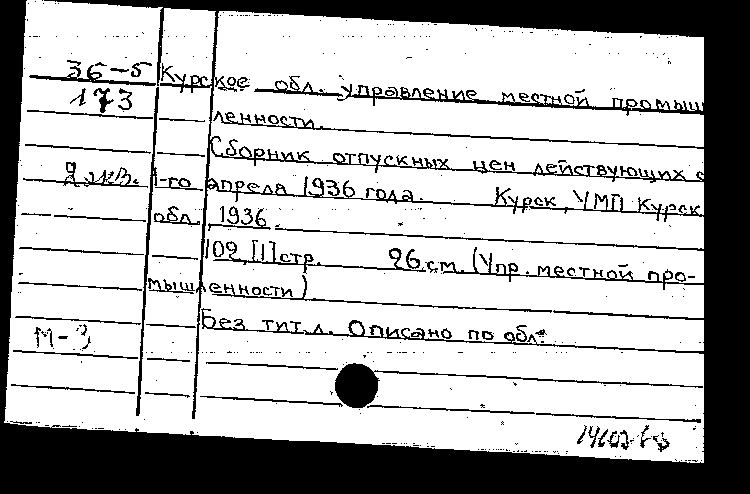 36-5 Курское обл. управление местной промыш
173 ленности.
Сборник отпускных цен действующих с
2 экз. 1-го апреля 1936 года. Курск, УМП Курск
обл., 1936.
102, [1] стр. 26 см. (Упр. местной про-
мышленности)
Без тит. л. Описано по обл.
М-3